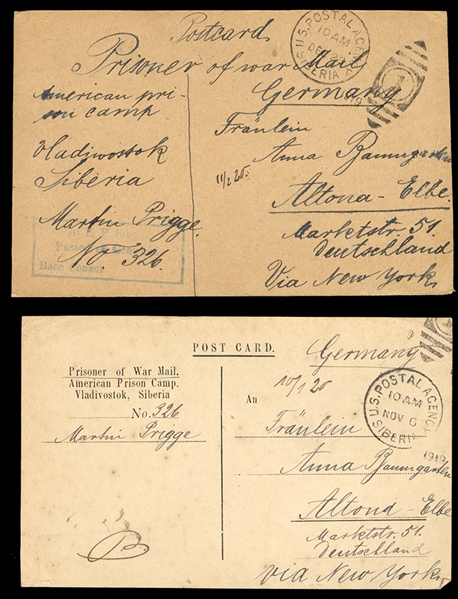 Postcard
Prisoner of war Mail
Germany
American pri-
son camp
Vladiwostok
Siberia
Martin Prigge.
No 326.
Base Censor
U.S. POSTAL AGENCY
10 AM
SIBERIA
11/2 20.
Fräulein
Anna Baumgarten
Altona - Elbe.
Marktstr. 51.
Deutschland
Via New York
POST CARD.
Germany
Prisoner of War Mail.
American Prison Camp.
Vladivostok, Siberia
No. 326
Martin Prigge
An
10/1 20
U.S. POSTAL AGENCY
10 AM
NOV 6
1919
SIBERIA
Fräulein
Anna Baumgarten
Altona - Elbe
Marktstr. 51.
Deutschland
via New York